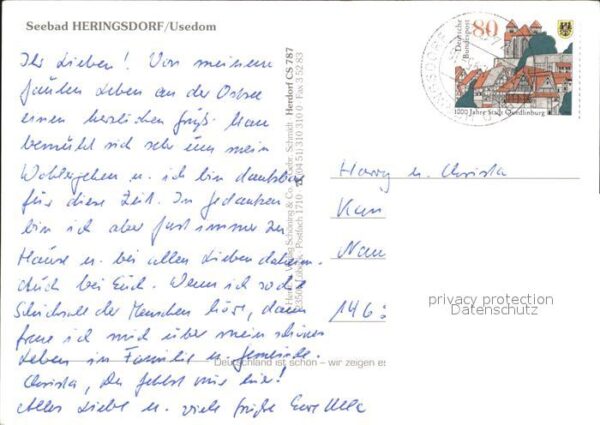 Seebad HERINGSDORF/Usedom
Ihr Lieben! Von meinem
faulen Leben an der Ostsee
einen herzlichen Gruß. Man
bemüht sich sehr um mein
Wohlergehen u. ich bin dankbar
für diese Zeit. In Gedanken
bin ich aber fast immer zu
Hause u. bei allen Lieben daheim.
Auch bei Euch. Wenn ich so die
Schicksale der Menschen höre, dann
freue ich mich über mein schönes
Leben in Familie u. Gemeinde.
Christa, Du fehlst mir hier!
Alles Liebe u. viele Grüße Eure Ulla
Verlag Schöning & Co. + Gebr. Schmidt · Herdorf CS 787
Lübeck · Postfach 1710 · (04 51) 310 310 · Fax 3 52 83
Deutschland ist schön – wir zeigen es
Deutsche
Bundespost
80
1000 Jahre Stadt Quedlinburg
Harry u. Christa
Kan
Nau
146
privacy protection
Datenschutz